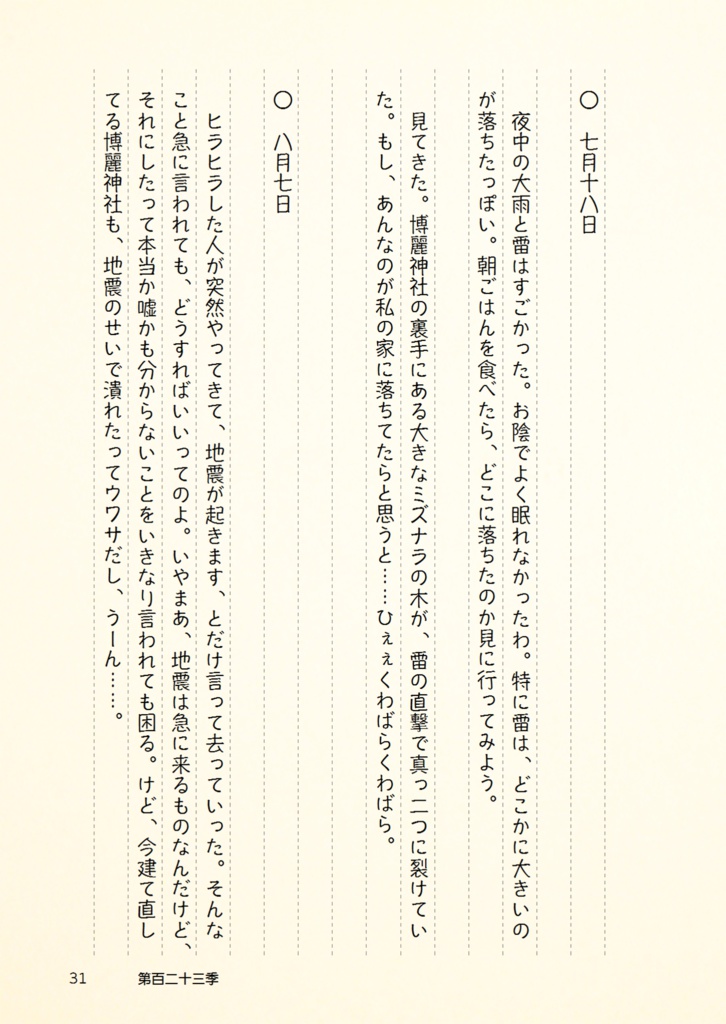 〇　七月十八日
　夜中の大雨と雷はすごかった。お陰でよく眠れなかったわ。特に雷は、どこかに大きいの
が落ちたっぽい。朝ごはんを食べたら、どこに落ちたのか見に行ってみよう。
　見てきた。博麗神社の裏手にある大きなミズナラの木が、雷の直撃で真っ二つに裂けてい
た。もし、あんなのが私の家に落ちてたらと思うと……ひぇぇくわばらくわばら。
〇　八月七日
　ヒラヒラした人が突然やってきて、地震が起きます、とだけ言って去っていった。そんな
こと急に言われても、どうすればいいってのよ。いやまあ、地震は急に来るものなんだけど、
それにしたって本当か嘘かも分からないことをいきなり言われても困る。けど、今建て直し
てる博麗神社も、地震のせいで潰れたってウワサだし、うーん……。
31　第百二十三季